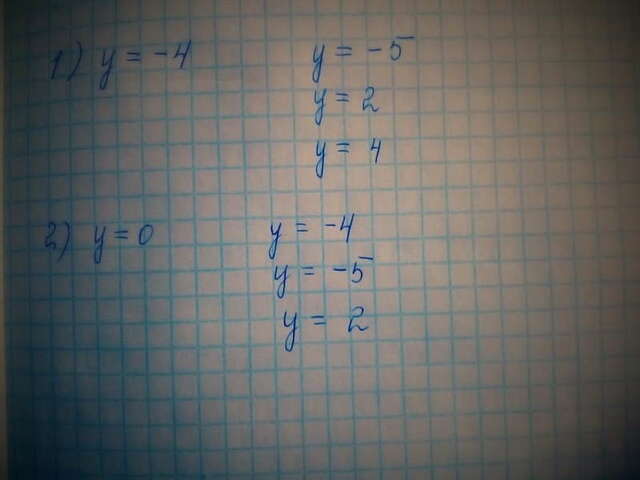 1) y = -4 y = -5
y = 2
y = 4
2) y = 0 y = -4
y = -5
y = 2